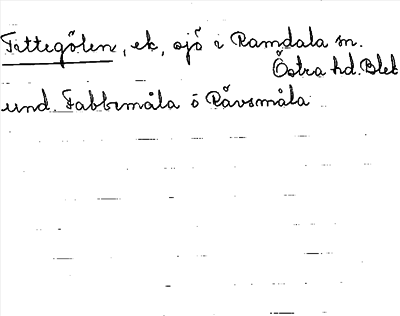 Fittegölen, ek, sjö i Ramdala sn.
Östra hd. Blek
und. Fabbemåla o Rävsmåla